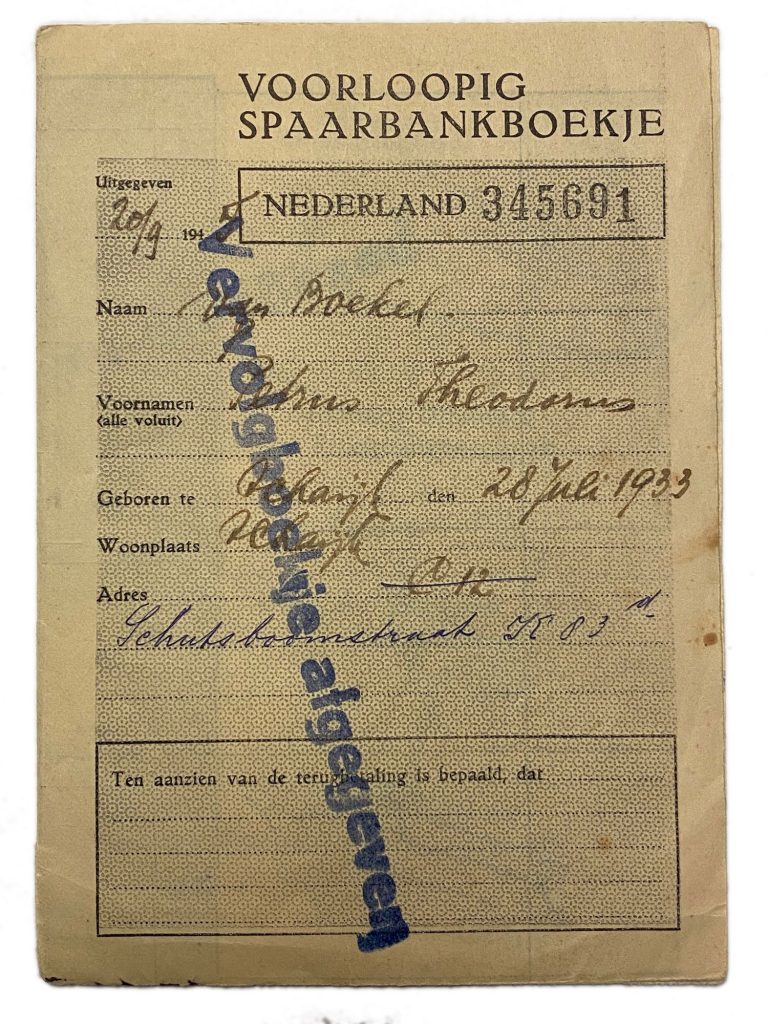 VOORLOOPIG
SPAARBANKBOEKJE
Uitgegeven
20/9 1945
NEDERLAND 345691
Naam van Boekel.
Voornamen Petrus Theodorus
(alle voluit)
Geboren te Schaijk den 28 Juli 1933
Woonplaats Schaijk
Adres 12
Schutsboomstraat K 83 d
Ten aanzien van de terugbetaling is bepaald, dat
Vervolgboekje afgegeven